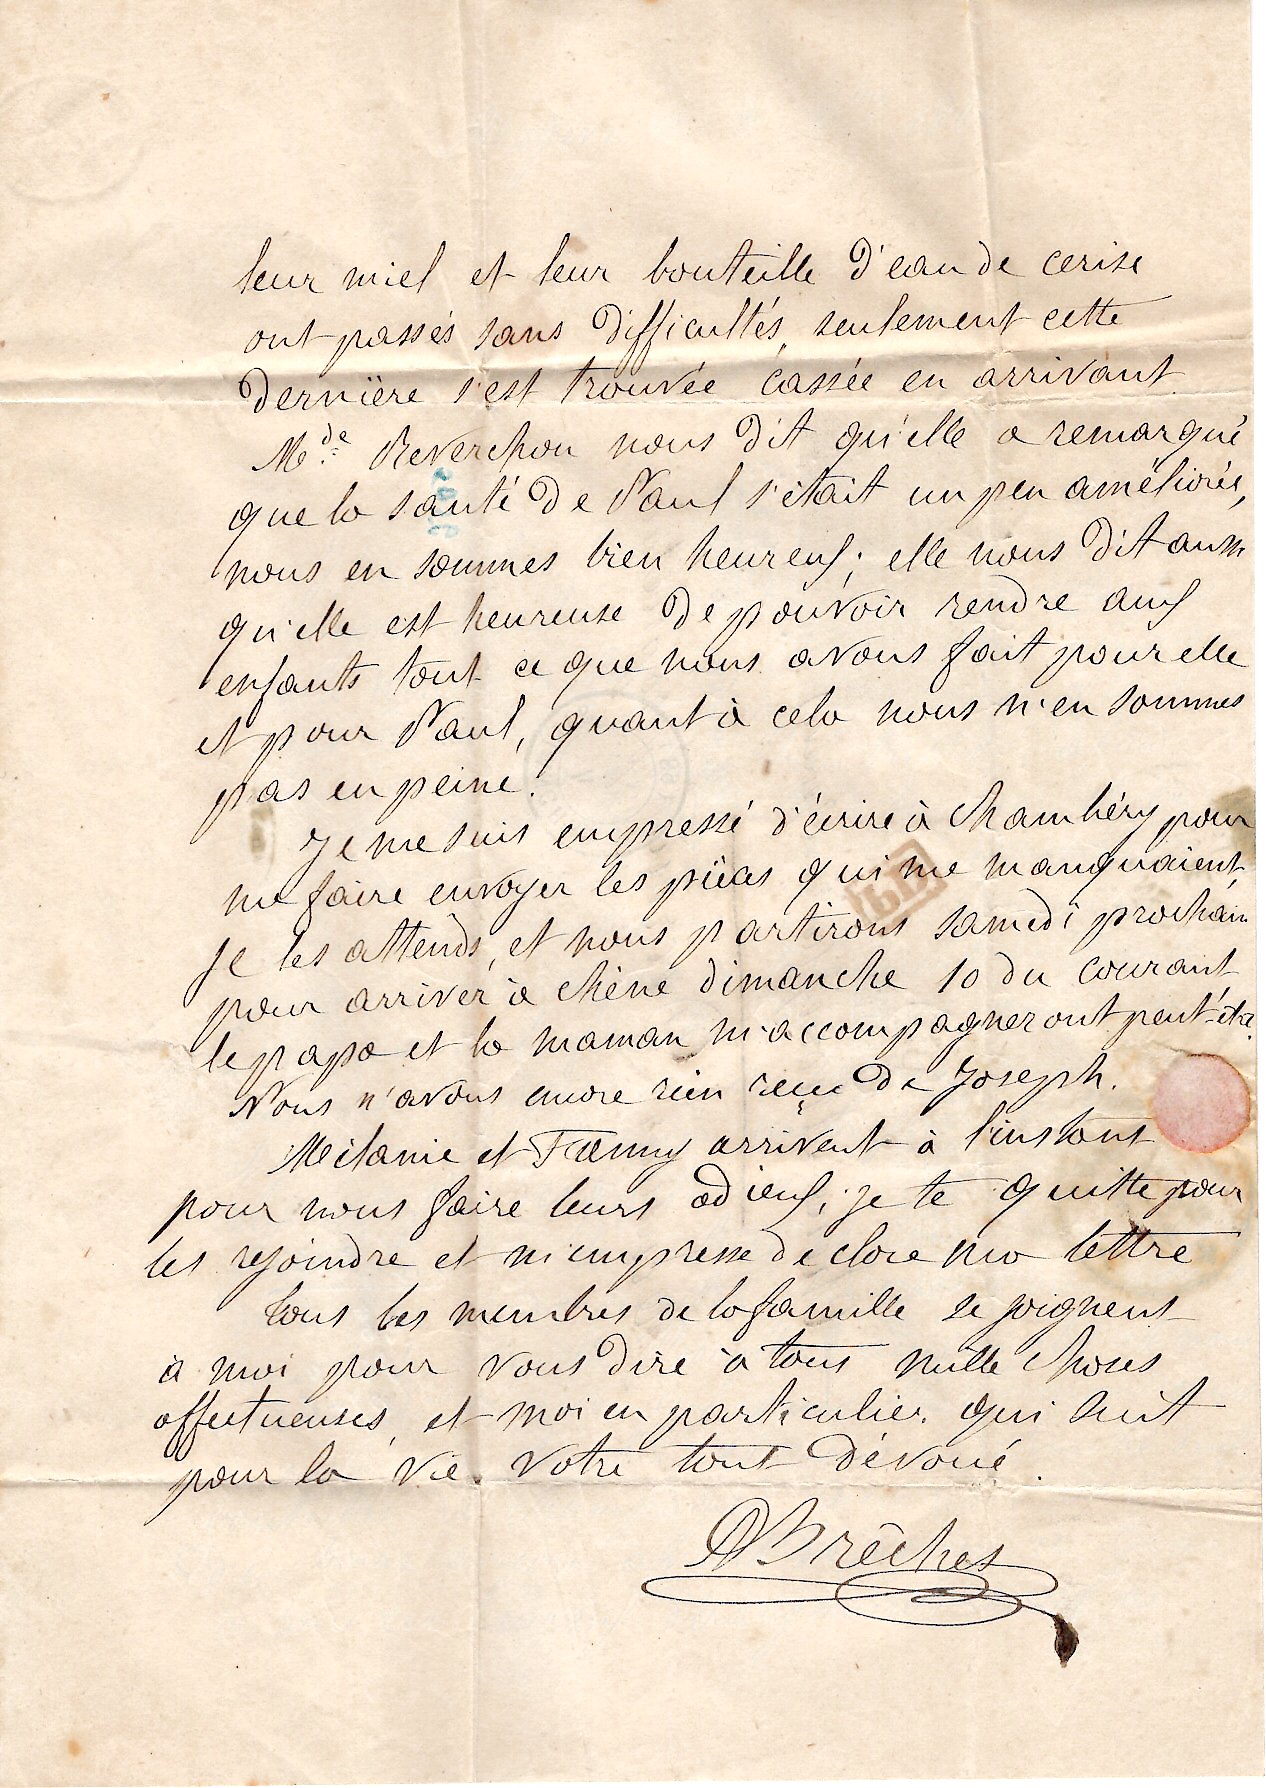 leur miel et leur bouteille d'eau de cerise
ont passés sans difficultés, seulement cette
dernière s'est trouvée cassée en arrivant.
Mde Reverchon nous dit qu'elle a remarqué
que la santé de Paul s'était un peu améliorée,
nous en sommes bien heureux; elle nous dit aussi
qu'elle est heureuse de pouvoir rendre aux
enfants tout ce que nous avons fait pour elle
et pour Paul, quant à cela nous n'en sommes
pas en peine.
Je me suis empressé d'écrire à Chambéry pour
me faire envoyer les pièces qui me manquaient,
je les attends, et nous partirons samedi prochain
pour arriver à Chêne dimanche 10 du courant
le papa et la maman m'accompagneront peut-être.
Nous n'avons encore rien reçu de Joseph.
Mélanie et Fanny arrivent à l'instant
pour nous faire leurs adieux, je te quitte pour
les rejoindre et m'empresse de clore ma lettre
tous les membres de la famille se joignent
à moi pour vous dire à tous mille choses
affectueuses, et moi en particulier qui suit
pour la vie votre tout dévoué.
ABrêches
PD